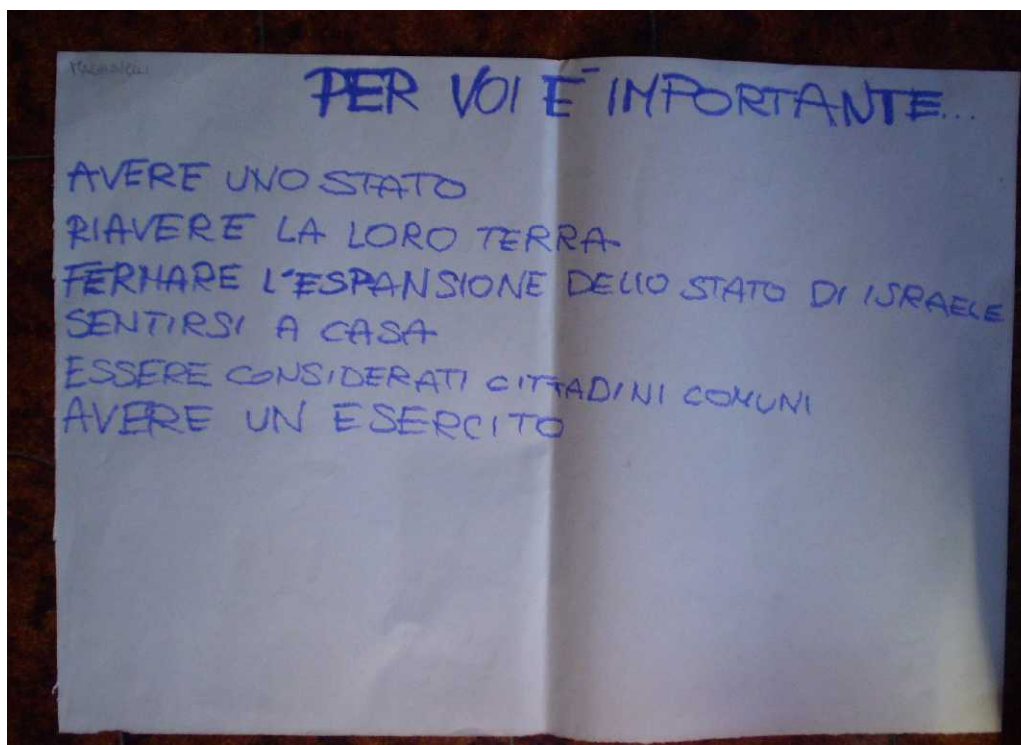 PER VOI E' IMPORTANTE...
AVERE UNO STATO
RIAVERE LA LORO TERRA
FERMARE L'ESPANSIONE DELLO STATO DI ISRAELE
SENTIRSI A CASA
ESSERE CONSIDERATI CITTADINI COMUNI
AVERE UN ESERCITO